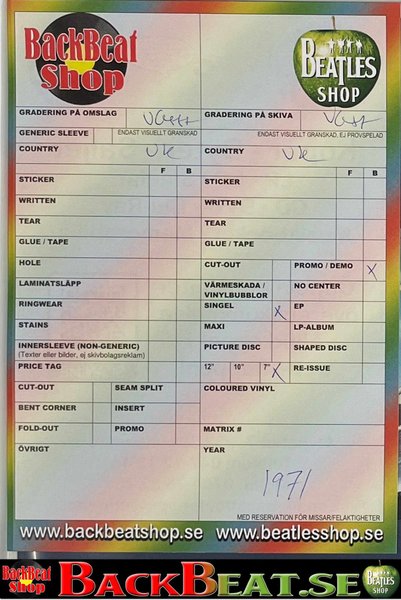 BackBeat Shop
BEATLES SHOP
GRADERING PÅ OMSLAG VG++
GRADERING PÅ SKIVA VG++
GENERIC SLEEVE ENDAST VISUELLT GRANSKAD
ENDAST VISUELLT GRANSKAD, EJ PROVSPELAD
COUNTRY UK
COUNTRY UK
F B
F B
STICKER
STICKER
WRITTEN
WRITTEN
TEAR
TEAR
GLUE / TAPE
GLUE / TAPE
HOLE
CUT-OUT PROMO / DEMO X
LAMINATSLÄPP
VÄRMESKADA / VINYLBUBBLOR NO CENTER
RINGWEAR
SINGEL X EP
STAINS
MAXI LP-ALBUM
INNERSLEEVE (NON-GENERIC)
(Texter eller bilder, ej skivbolagsreklam)
PICTURE DISC SHAPED DISC
PRICE TAG
12" 10" 7" X RE-ISSUE
CUT-OUT SEAM SPLIT
COLOURED VINYL
BENT CORNER INSERT
FOLD-OUT PROMO
MATRIX #
ÖVRIGT
YEAR
1971
MED RESERVATION FÖR MISSAR/FELAKTIGHETER
www.backbeatshop.se www.beatlesshop.se
BackBeat Shop BACKBEAT.SE BEATLES SHOP